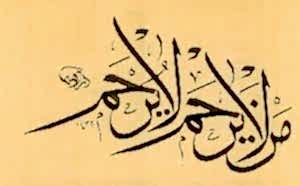 من لا يرحم لا يرحم